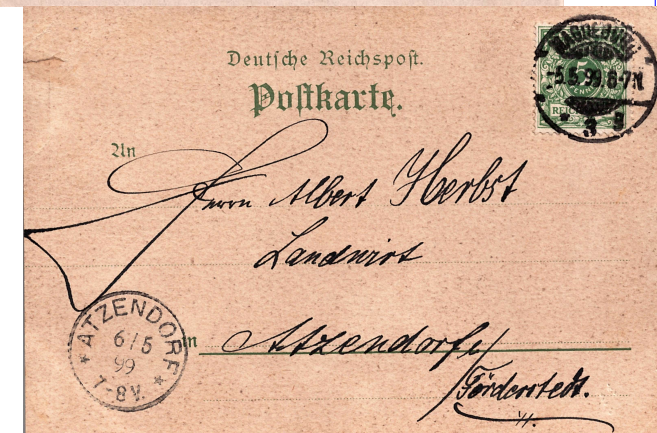 Deutsche Reichspost.
Postkarte.
MAGDEBURG
-5.5.99.6-7N
* 3 g
5
REICH
An
Herrn Albert Herbst
Landwirt
in Atzendorf/
/Förderstedt.
* ATZENDORF *
6/5
99
7-8V.